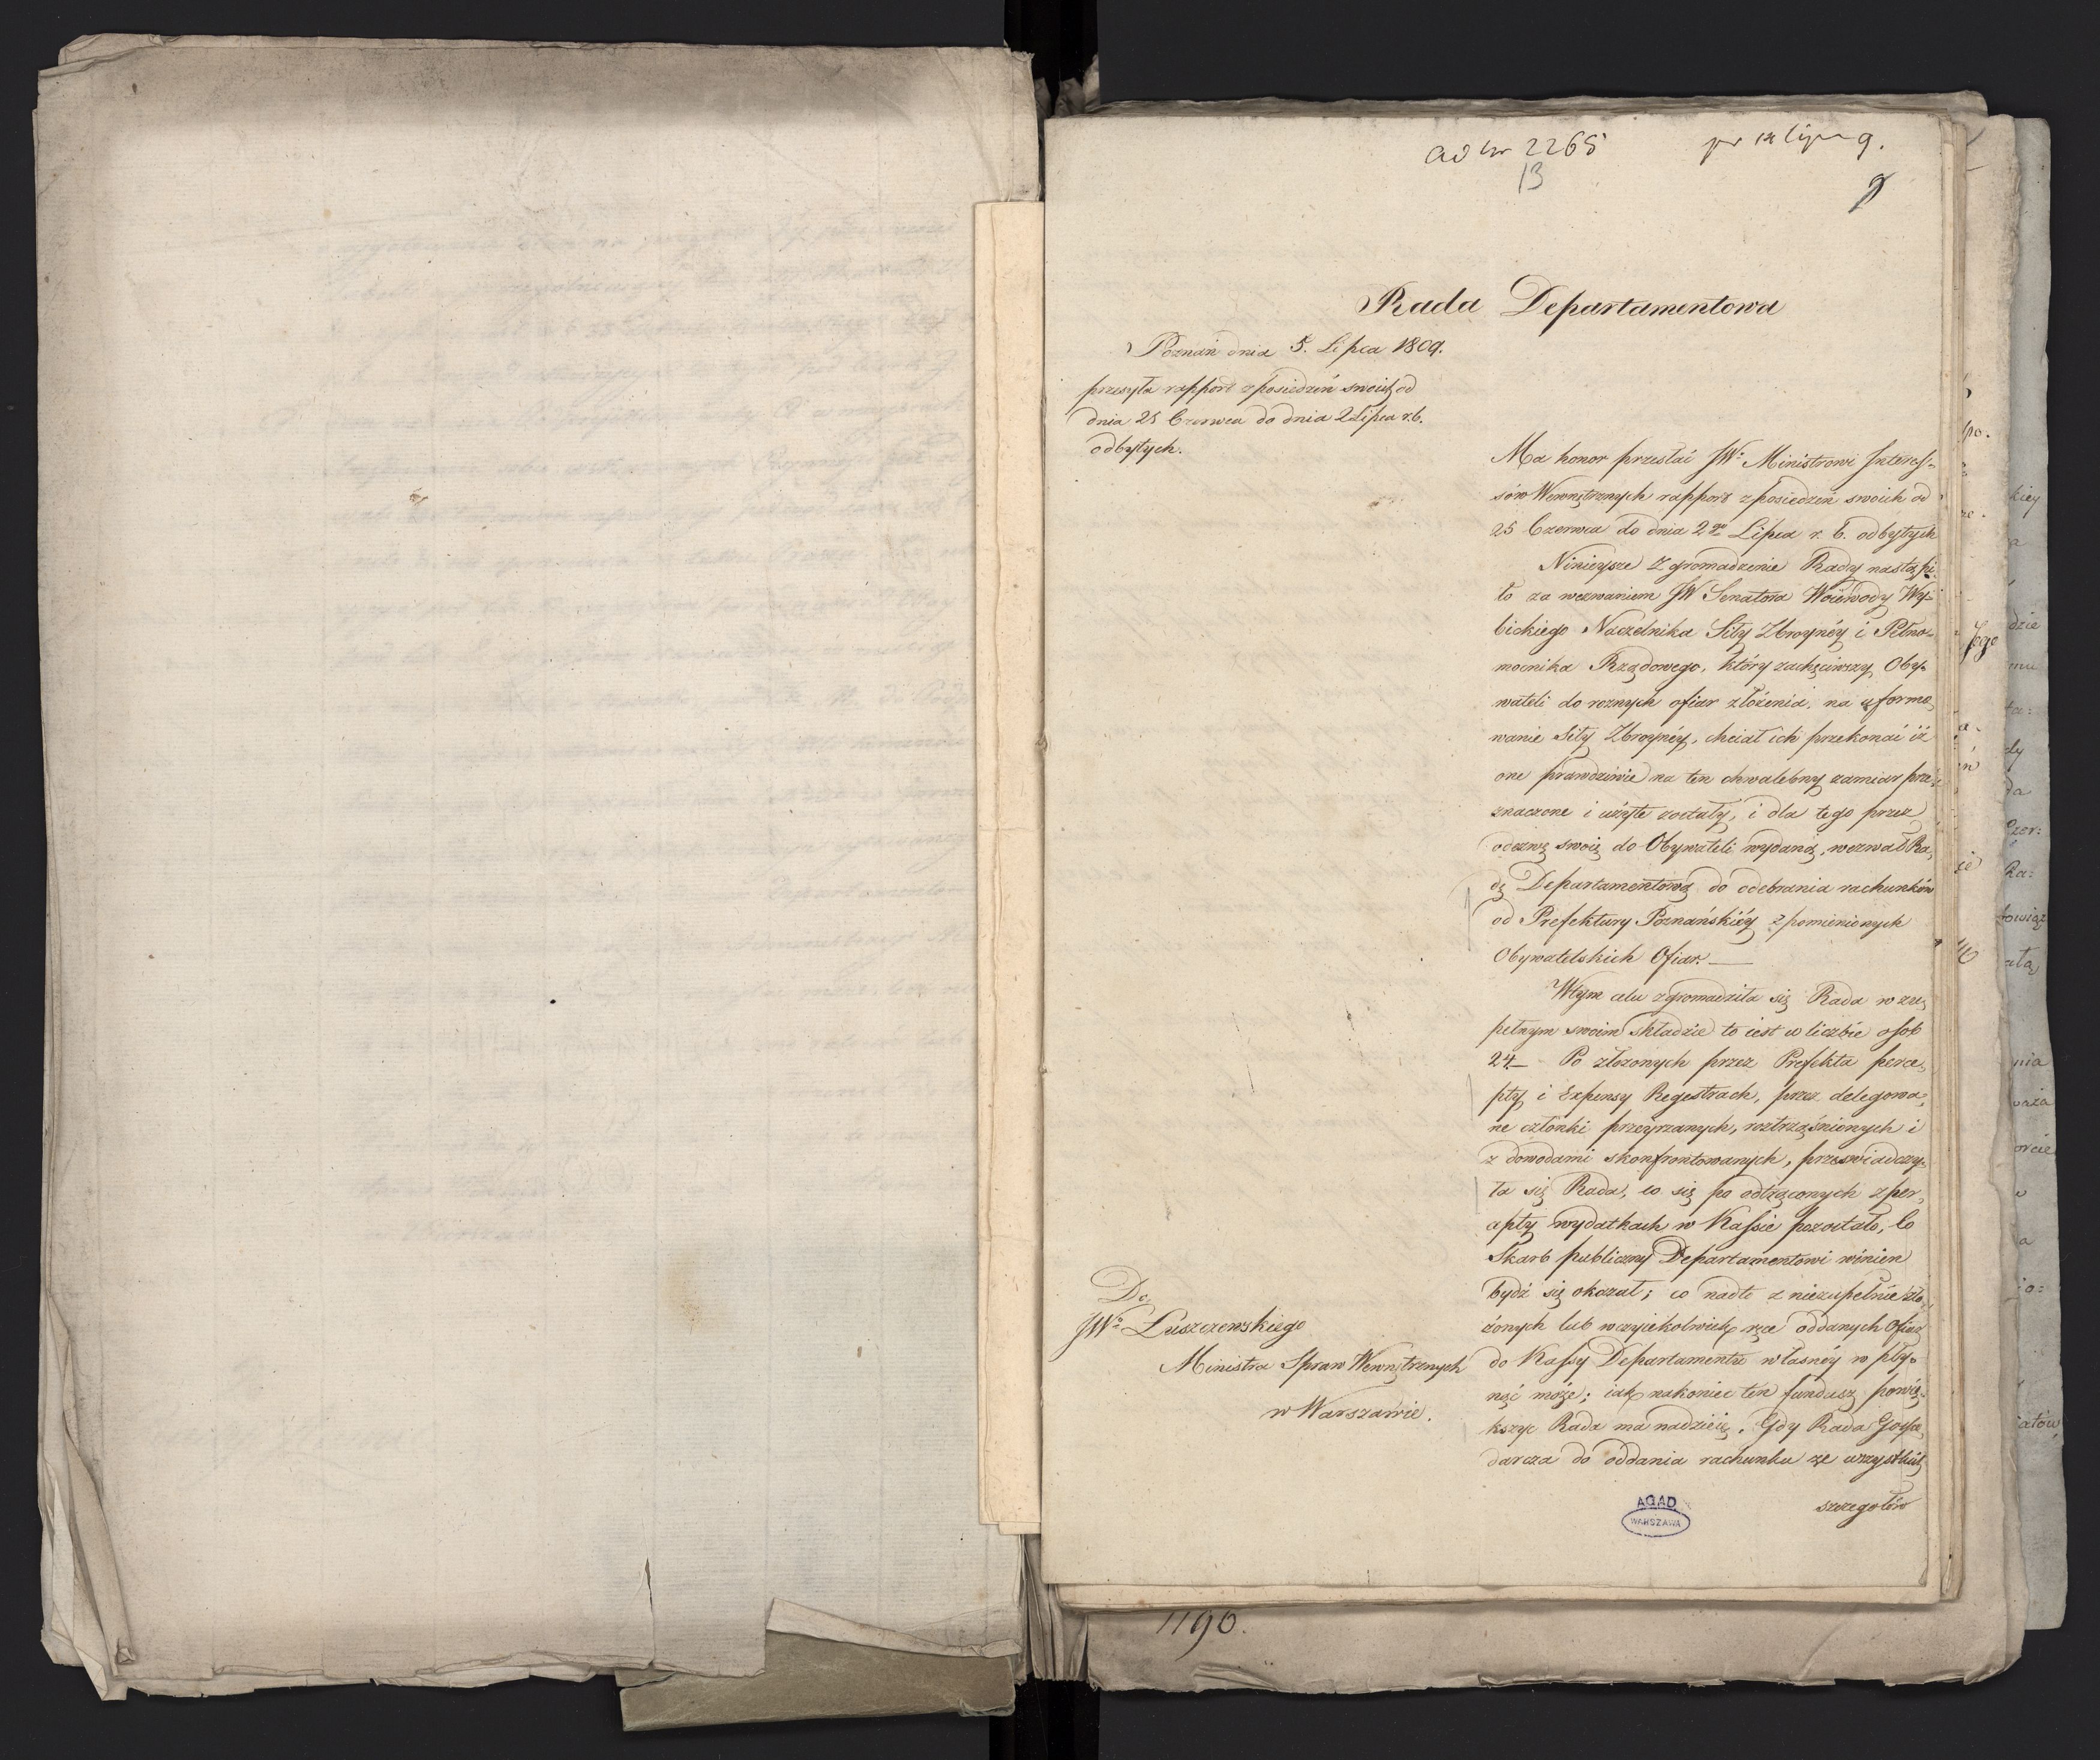 ad Nr 2265
13
9
Rada Departamentowa
Poznań dnia 5. Lipca 1809.
przesyła rapport z posiedzeń swoich od
dnia 25 Czerwca do dnia 2 Lipca r.b.
odbytych.
Ma honor przesłać JWu Ministrowi Interes-
sów Wewnętrznych rapport z posiedzeń swoich od
25 Czerwca do dnia 2go Lipca r. b. odbytych
Ninieysze Zgromadzenie Rady nastąpi-
ło za wezwaniem JW Senatora Woiewody Wy-
bickiego Naczelnika Siły Zbroyney i Pełno-
mocnika Rządowego, który zachęciwszy Oby-
wateli do roznych ofiar złożenia, na uformo-
wanie Siły Zbroyney, chciał ich przekonać iż
one prawdziwie na ten chwalebny zamiar prze-
znaczone i użyte zostały, i dla tego przez
odezwę swoię do Obywateli wydaną, wezwał Ra-
dę Departamentową do odebrania rachunków
od Prefektury Poznańskiey z pomienionych
Obywatelskich Ofiar. —
W tym celu zgromadziła się Rada w zu-
pełnym swoim składzie to iest w liczbie osob
24. — Po złożonych przez Prefekta perce-
pty i Expensy Regestrach, przez delegowa-
ne członki przeyrzanych, roztrząśnionych i
z dowodami skonfrontowanych, przeświadczy-
ła się Rada, co się po odtrąconych z per-
cepty wydatkach w Kassie pozostało, co
Skarb publiczny Departamentowi winien
bydź się okazał; co nadto z niezupełnie zło-
żonych lub w czyiekolwiek ręce oddanych Ofiar
do Kassy Departamentu własney w pły-
nąć może; iak nakoniec ten fundusz powię-
kszyc Rada ma nadzieię. Gdy Rada Gospo-
darcza do oddania rachunku ze wszystkich
szczegołów
Do
JWo Łuszczewskiego
Ministra Spraw Wewnętrznych
w Warszawie.
AGAD
WARSZAWA
1190.